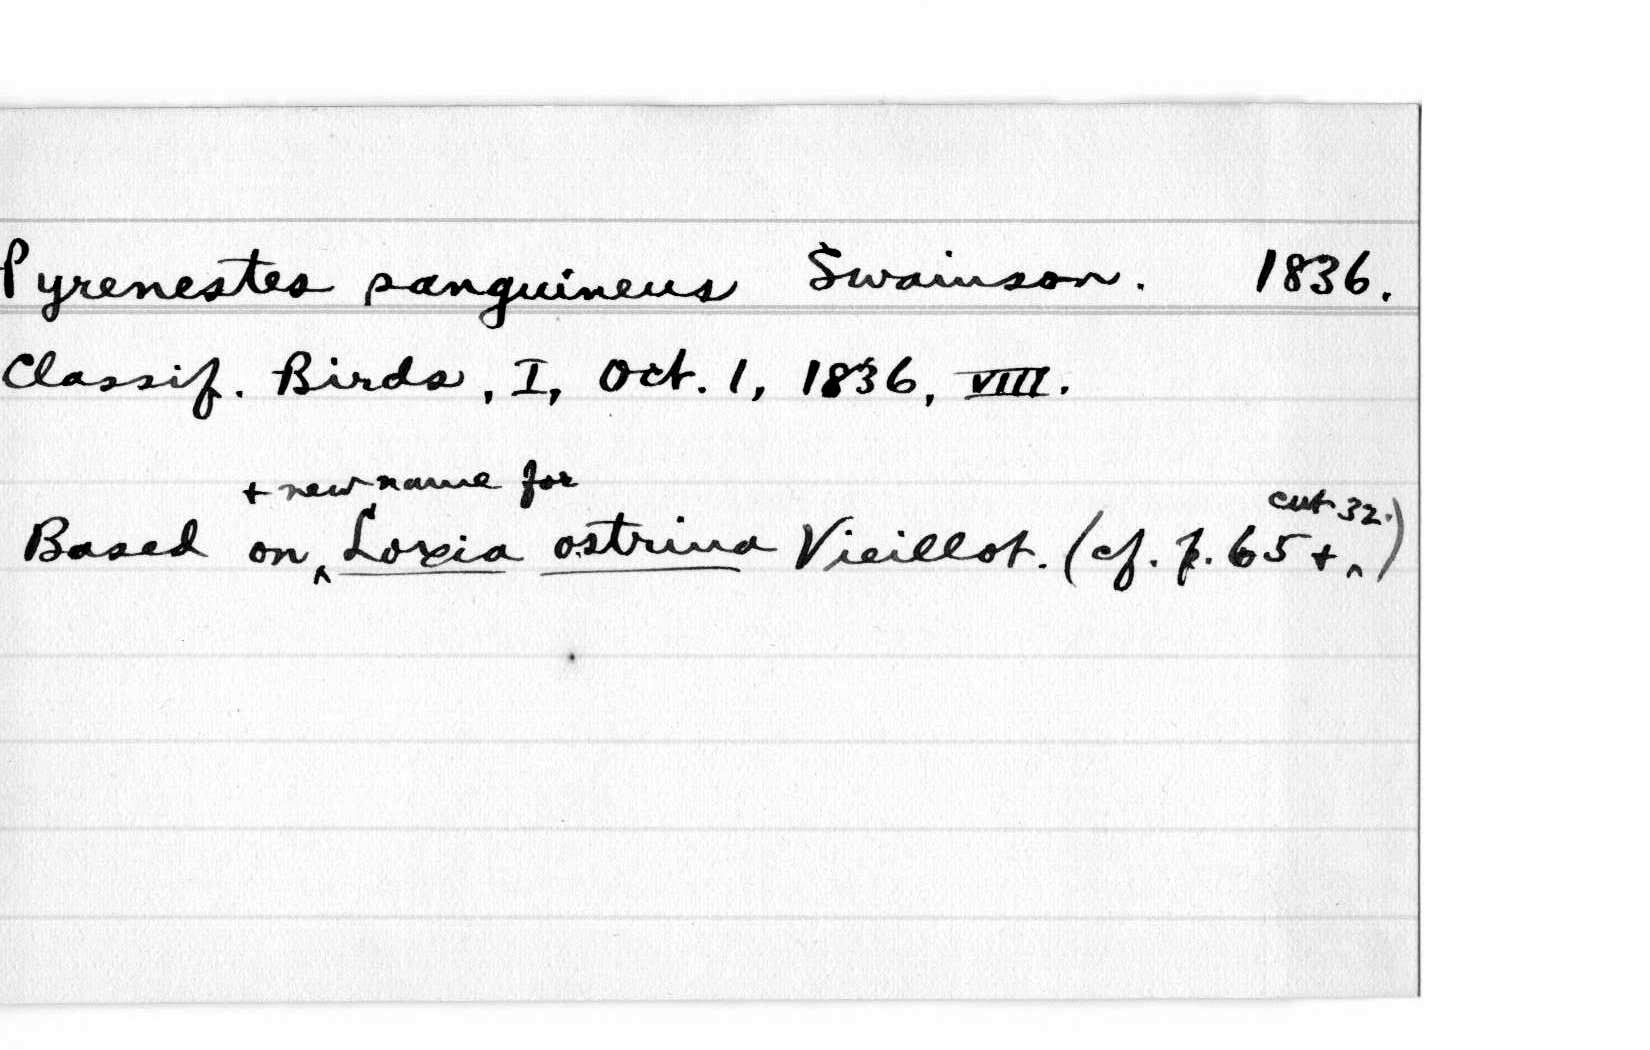 Pyrenestes sanguineus Swainson. 1836.
Classif. Birds, I, Oct. 1, 1836, VIII.
+ new name for
Based on ^ Loxia ostrina Vieillot. (cf. p. 65 + ^)
cut 32.